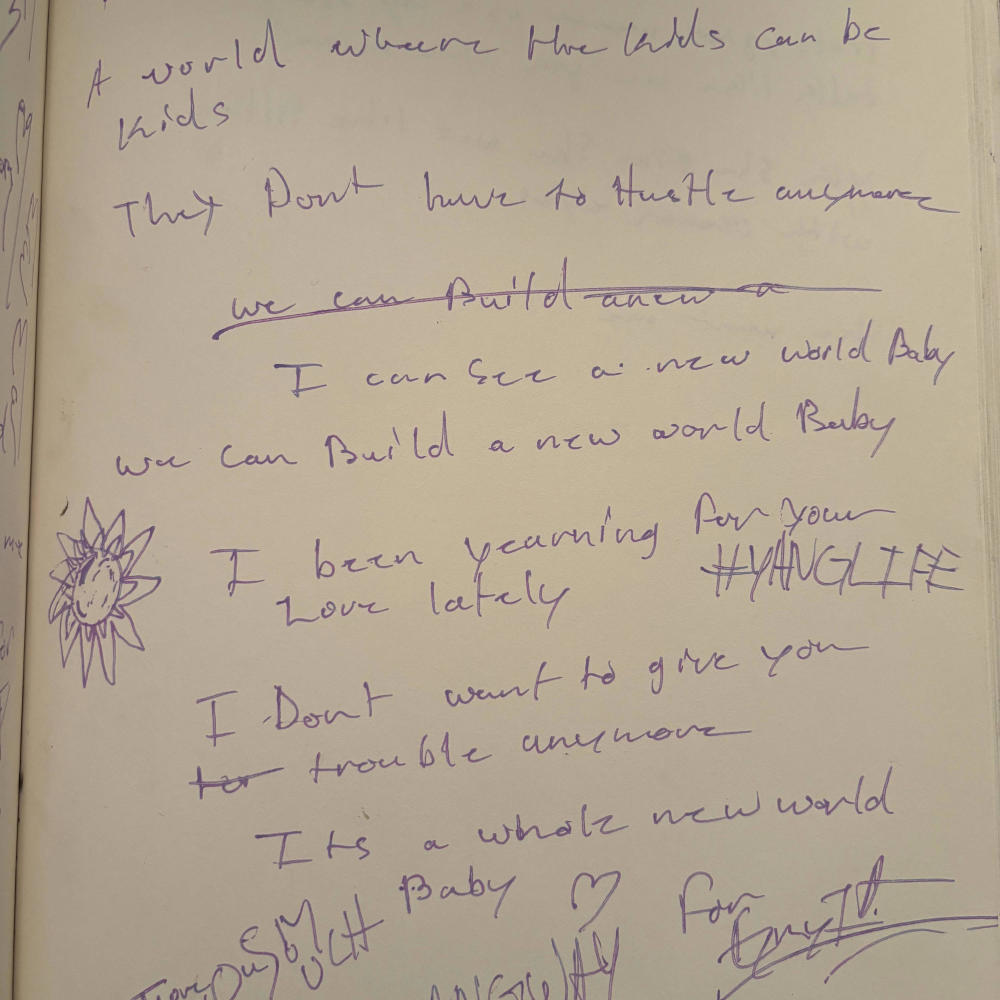 A world where the kids can be
kids
They Dont have to Hustle anymore
we can Build anew a
I can See a new world Baby
we can Build a new world Baby
I been yearning for your
Love lately
#YANGLIFE
I Dont want to give you
trouble anymore
Its a whole new world
Baby ♡ For
I love you SO MUCH